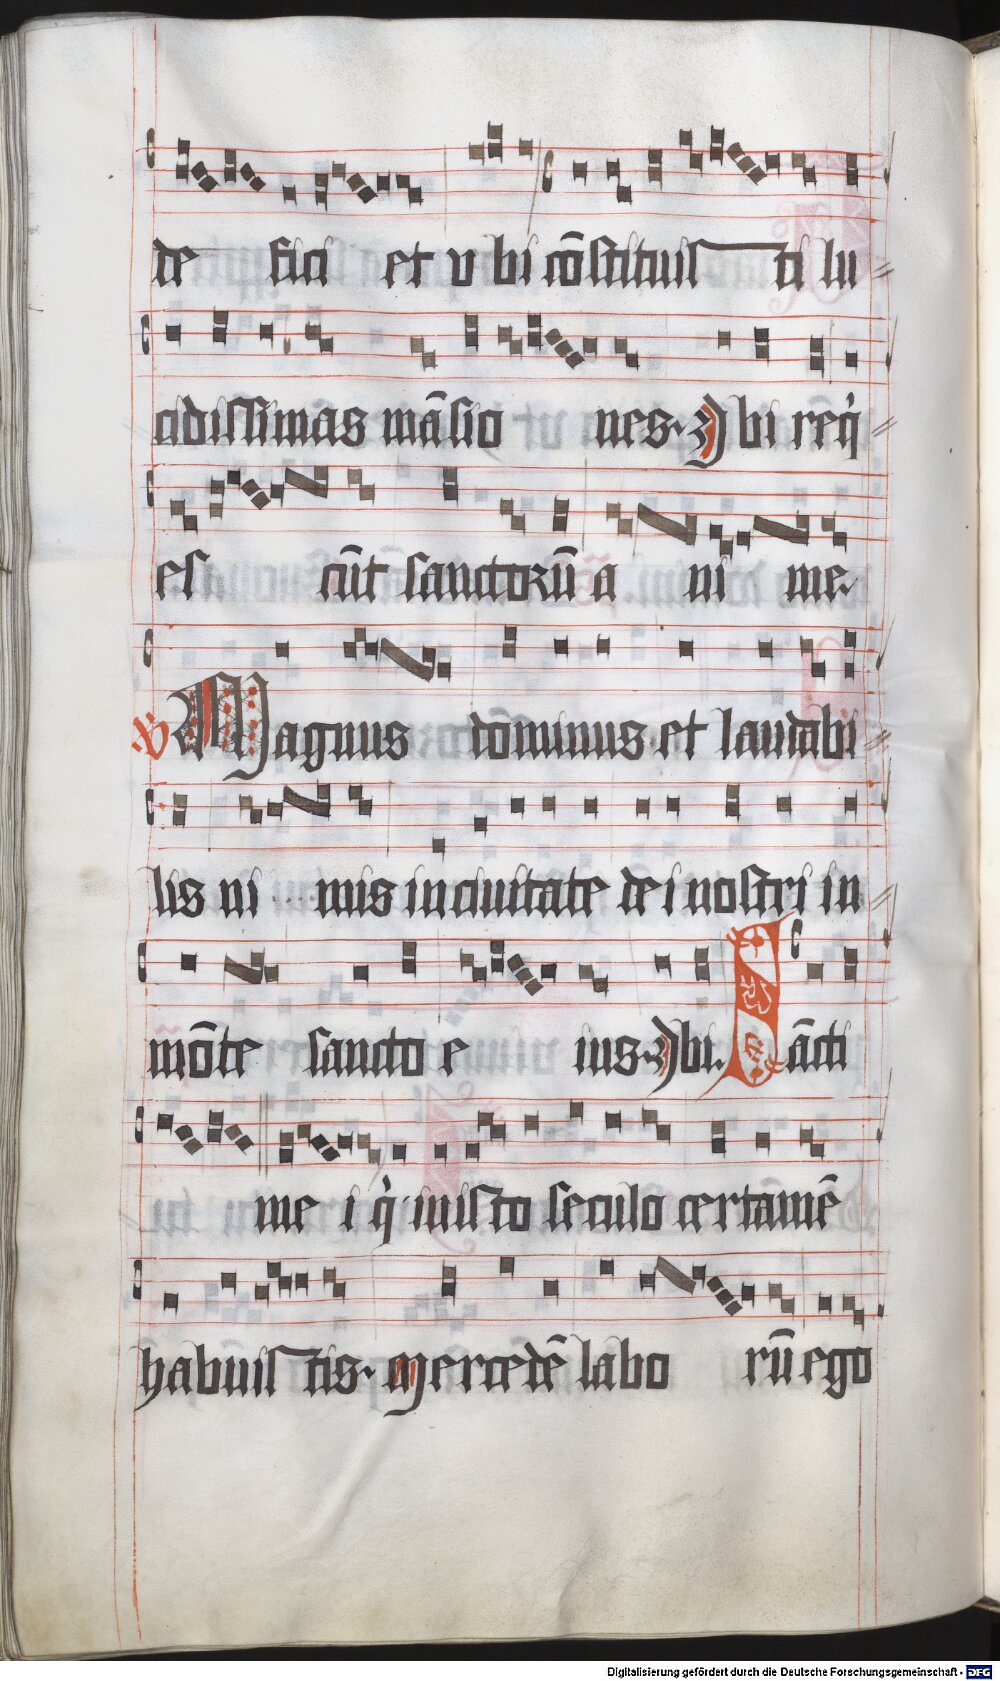 de fici et v bi cōstituis ti lu=
cidissimas māsio nes. Vbi req̇=
es cūt sanctorū a ni me.
V Magnus dominus et laudabi=
lis ni mis in ciuitate dei nostri in=
mōte sancto e ius. Vbi. Sācti
me i q̇ in isto seculo certamē
habuis tis. Mercedē labo rū ego
Digitalisierung gefördert durch die Deutsche Forschungsgemeinschaft - DFG